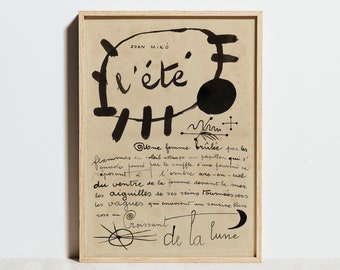 JOAN MIRÓ
l'été
Une femme brûlée par les
flammes du soleil attrape un papillon qui s'
envole poussé par le souffle d'une fourmi
reposant à l'ombre arc-en-ciel
du ventre de la femme devant la mer
les aiguilles de ses seins tournées vers
les vagues qui envoient un sourire blanc
rose au Croissant
de la lune